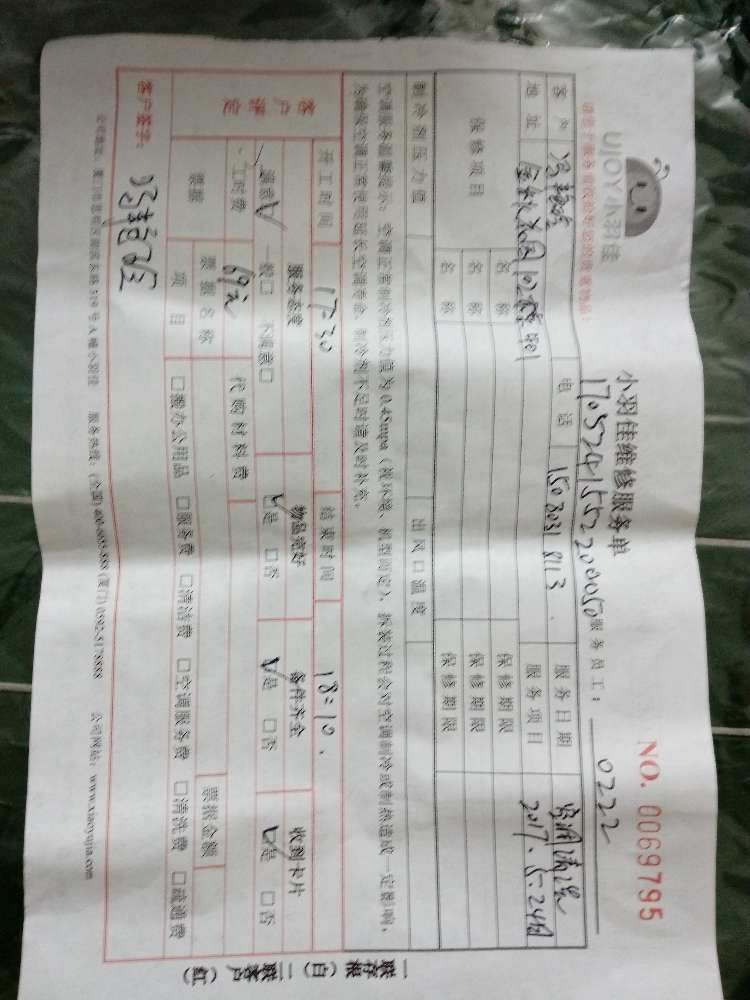 UJOY小羽佳
小羽佳维修服务单
NO. 0069795
170524155220000050
服务员工: 0222
客户
电话 150 8031 8113
服务日期
地址
服务项目 2017.5.24
保修项目
名称
保修期限
名称
保修期限
名称
保修期限
制冷剂压力值
出风口温度
空调服务温馨提示:空调正常制冷剂压力值为0.45mpa(视环境、机型而定),拆装过程会对空调制冷或制热造成一定影响,
为确保空调正常使用延长空调寿命,制冷剂不足时请及时补充。
客户评定
开工时间 17:30
结束时间 18:10.
服务态度
物品完好
备件齐全
收到卡片
满意 一般□ 不满意□
□是 □否
□是 □否
□是 □否
工时费 69元
代购材料费
票据
票据名称
票据金额
项目
□搬办公用品 □服务费 □清洁费 □空调服务费 □清洗费 □疏通费
客户签字:
服务热线:(全国)400-6685-888 (厦门)0592-5178888
公司网站:www.xiaoyujia.com
一联存根(白) 二联客户(红)